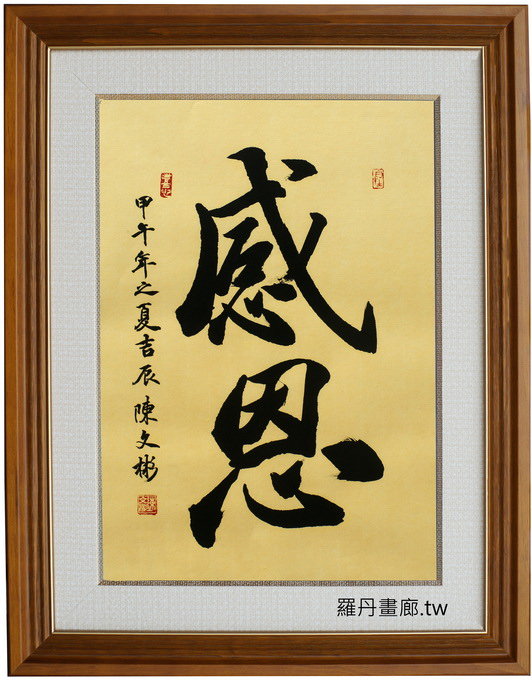 感恩
甲午年之夏吉辰陳文彬
羅丹畫廊.tw